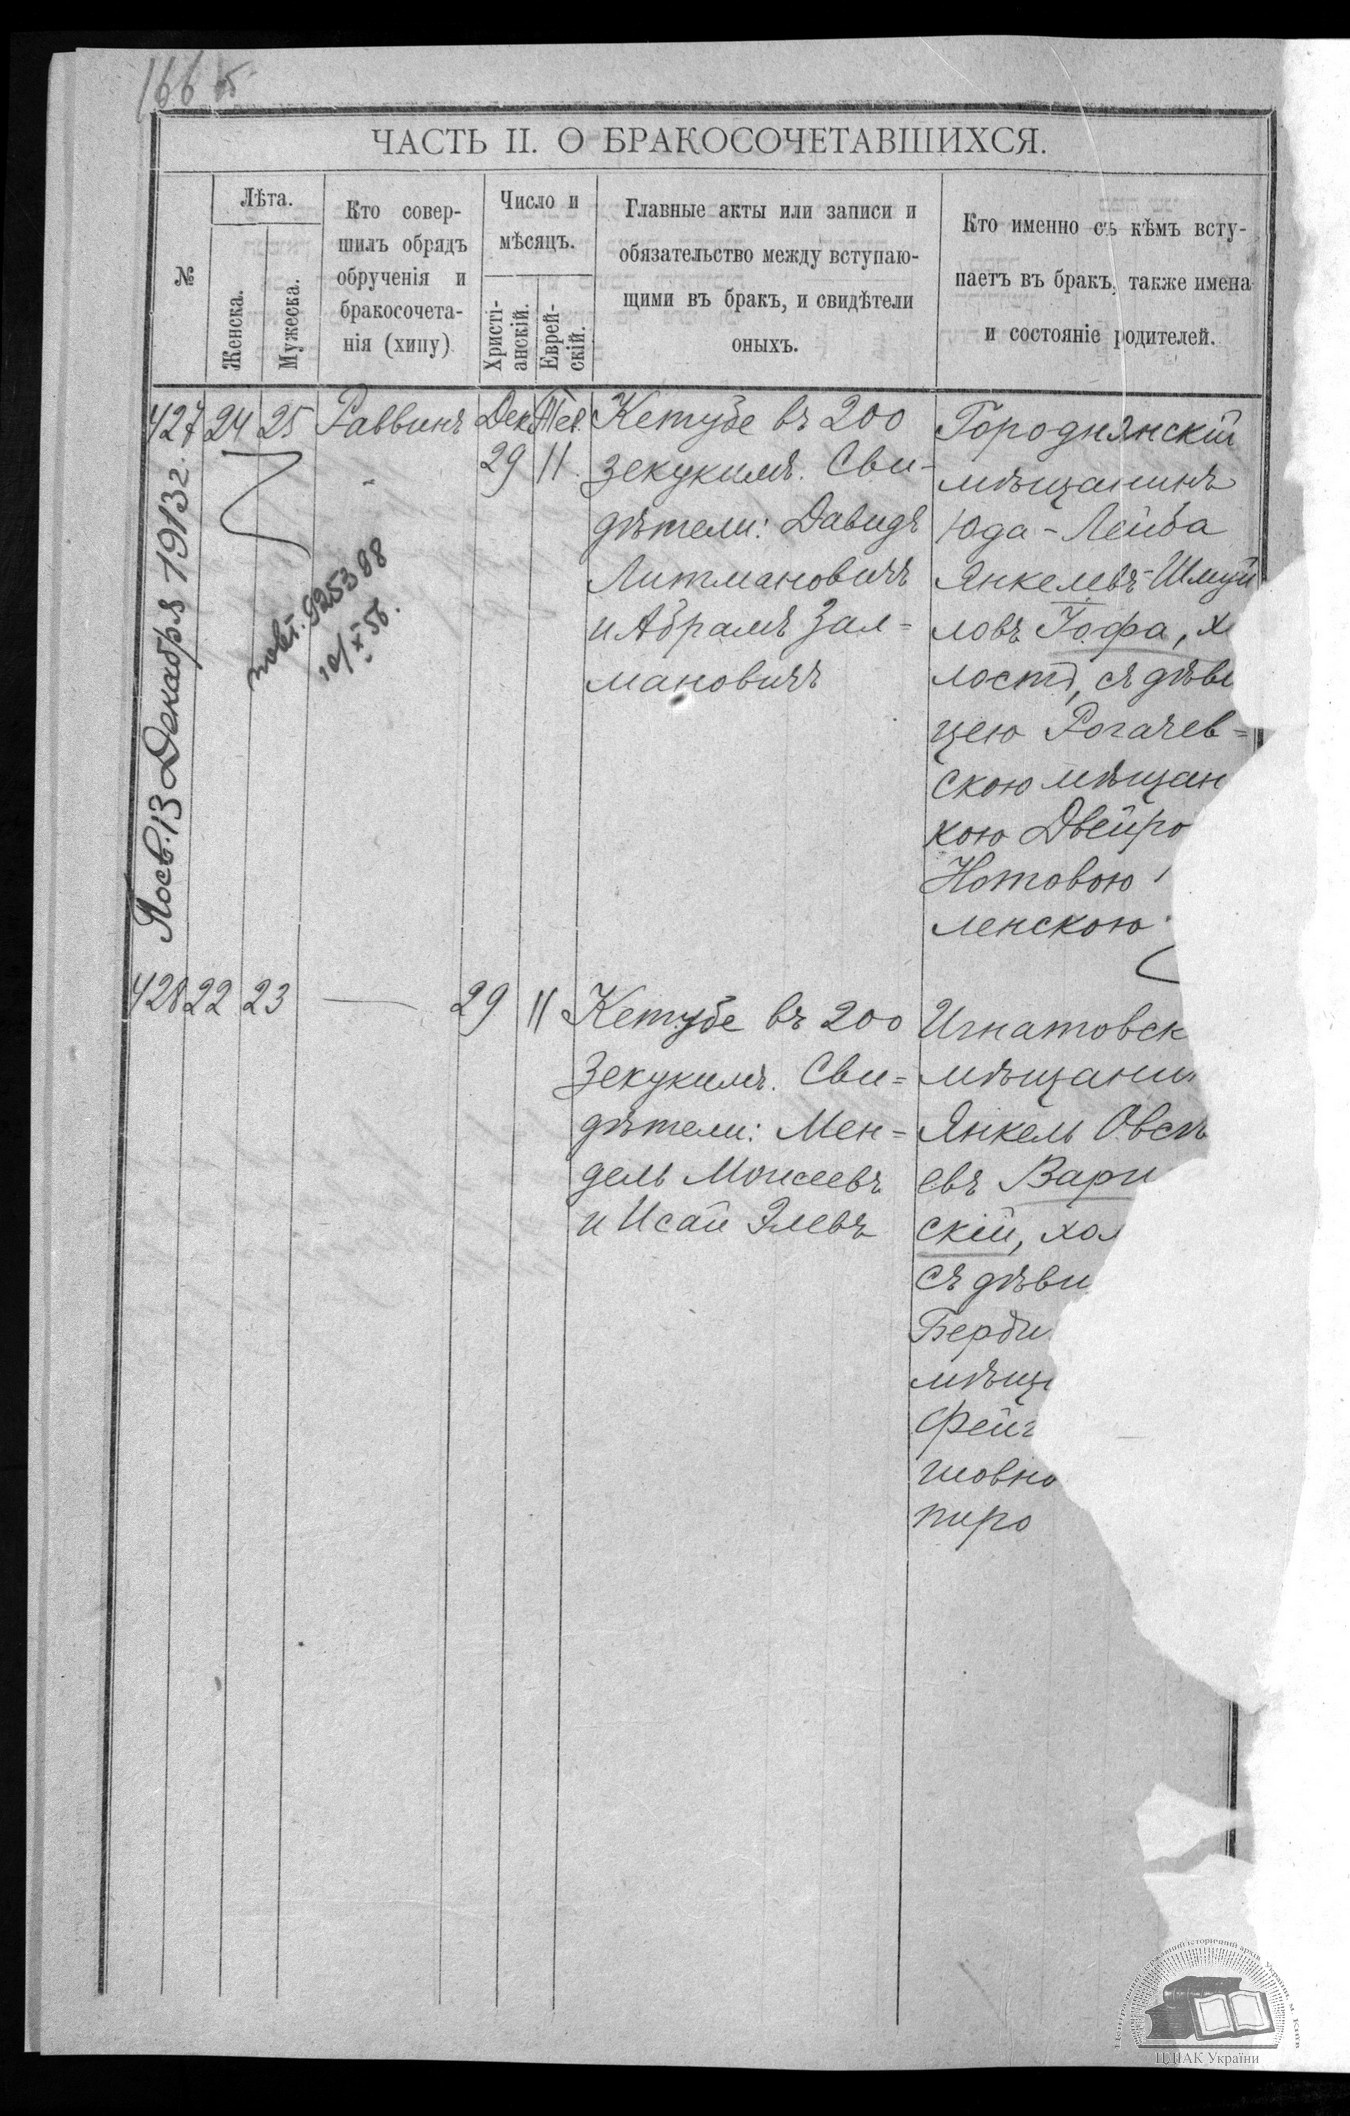 166
ЧАСТЬ II. О БРАКОСОЧЕТАВШИХСЯ.
№
Лѣта.
Женска.
Мужеска.
Кто совер-
шилъ обрядъ
обрученія и
бракосочета-
нія (хипу)
Число и
мѣсяцъ.
Христі-
анскій.
Еврей-
скій.
Главные акты или записи и
обязательство между вступаю-
щими въ бракъ, и свидѣтели
оныхъ.
Кто именно съ кѣмъ всту-
паетъ въ бракъ, также имена
и состояніе родителей.
427 24 25 Раввинъ Дек. Тев.
29 11
Кетубе въ 200
зекукимъ. Сви-
дѣтели: Давидъ
Литмановичъ
и Абрамъ Зал=
мановичъ
Городнянскій
мѣщанинъ
Юда-Лейба
Янкелевъ-Шмуй
ловъ Іоффа, х
лостъ, съ дѣви
цею Рогачев=
скою мѣщан
кою Двейро
Нотовою
ленскою
13 Декабря 1913г.
повт. 925398
10/X 56.
428 22 23 — 29 11
Кетубе въ 200
Зекукимъ. Сви=
дѣтели: Мен=
дель Моисеевъ
и Исай Элевъ
Игнатовск
мѣщанин
Янкель Овсѣ
евъ Вари
скій, хол
съ дѣви
Берди
мѣщ
Фейг
шовно
пиро
Центральний державний історичний архів України, м. Київ
ЦДІАК України